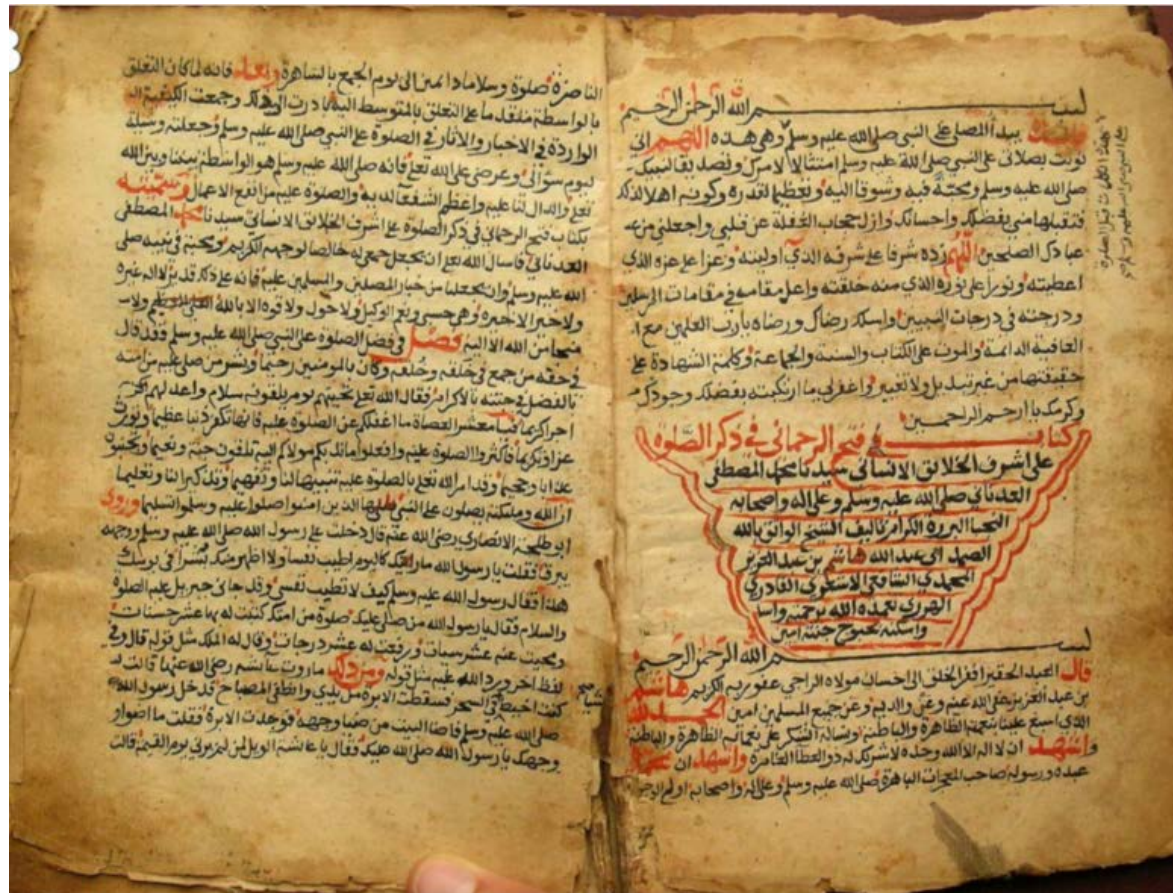 بسم الله الرحمن الرحيم
يبدأ المصلي على النبي صلى الله عليه وسلم وهي هذه اللهم اني
نويت بصلاتي على النبي صلى الله عليه وسلم امتثالا لامرك وتصديقا لنبيك
صلى الله عليه وسلم ومحبة فيه وشوقا اليه وتعظيما لقدره وكونه اهلا لذلك
فتقبلها مني بفضلك واحسانك وازل حجاب الغفلة عن قلبي واجعلني من
عبادك الصلحين اللهم زده شرفا على شرفه الذي اوليته وعزا على عزه الذي
اعطيته ونورا على نوره الذي منه خلقته واعل مقامه في مقامات المرسلين
ودرجته في درجات النبيين واسلك رضاك ورضاه يارب العلمين مع
العافية الدائمة والموت على الكتاب والسنة والجماعة وكلمة الشهادة على
حقيقتها من غير تبديل ولا تغيير واغفر لي ما ارتكبته بفضلك وجودك
وكرمك يا ارحم الراحمين
كتاب فتح الرحماني في ذكر الصلوة
على اشرف الخلائق الانساني سيدنا محمد المصطفى
العدناني صلى الله عليه وسلم وعلى اله واصحابه
النجبا البررة الكرام تاليف الشيخ الواثق بالله
الصمد ابي عبد الله هاشم بن عبد العزيز
المحمدي الشافعي الاشعري القادري
الهرري تغمده الله برحمته
واسكنه بحبوح جنته امين
بسم الله الرحمن الرحيم
قال العبد الحقير افقر الخلق الى احسان مولاه الراجي عفو ربه الكريم هاشم
بن عبد العزيز عفى الله عنه وعن والديه وعن جميع المسلمين امين الحمد لله
الذي اسبغ علينا نعمه الظاهرة والباطنة ونساله الشكر على نعمائه الظاهرة والباطنة
واشهد ان لا اله الا الله وحده لا شريك له ذو العطا الغامرة واشهد ان محمدا
عبده ورسوله صاحب المعجزات الباهرة صلى الله عليه وسلم وعلى اله واصحابه اولي الوجوه
الناضرة صلوة وسلاما دائمين الى يوم الجمع بالساهرة وبعد فانه لما كان التعلق
بالواسطة متقدما على التعلق بالمتوسط اليه بادرت الى ذلك وجمعت الكيفية
الواردة في الاخبار والاثار في الصلوة على النبي صلى الله عليه وسلم وجعلته وسيلة
ليوم سؤالي وعرضي على الله تعلى فانه صلى الله عليه وسلم هو الواسطة بيننا وبين الله
تعلى والدال لنا عليه واعظم الشفعا لديه والصلوة عليه من انفع الاعمال وسميته
بكتاب فتح الرحماني في ذكر الصلوة على اشرف الخلائق الانساني سيدنا محمد المصطفى
العدناني فاسال الله تعلى ان يجعل جمعي له خالصا لوجهه الكريم ومحبة في نبيه صلى
الله عليه وسلم وان يجعلنا من خيار المصلين والمسلمين عليه فانه على ذلك قدير لا اله غيره
ولا خير الا خيره وهو حسبي ونعم الوكيل ولا حول ولا قوة الا بالله العلي العظيم ولا
منجا من الله الا اليه فصل في فضل الصلوة على النبي صلى الله عليه وسلم فقد قال
في حقه من جمع في خلقه وخلقه وكان بالمومنين رحيما وبشر من صلى عليه من امته
بالفضل في جنته بالاكرام فقال الله تعلى تحيتهم يوم يلقونه سلام واعد لهم
اجرا كريما فيا معشر العصاة ما اغفلكم عن الصلوة عليه فانها تكفر ذنبا عظيما وتورث
عزا وتكريما فاكثروا الصلوة عليه وافعلوا ما امركم مولاكم اليه تلقون جنة ونعيما وتجنبون
عذابا وجحيما وقد امر الله تعلى بالصلوة عليه تنبيها لنا وتفهيما وتذكيرا لنا وتعليما
ان الله وملئكته يصلون على النبي يايها الذين امنوا صلوا عليه وسلموا تسليما وروى
ابو طلحة الانصاري رضي الله عنه قال دخلت على رسول الله صلى الله عليه وسلم ووجهه
يبرق فقلت يا رسول الله ما رايتك كاليوم اطيب نفسا ولا اظهر منك بشرا في يومك
هذا فقال رسول الله عليه وسلم كيف لا تطيب نفسي وقد جاني جبريل عليه الصلوة
والسلام فقال يا رسول الله من صلى عليك صلوة من امتك كتبت له بها عشر حسنات
ومحيت عنه عشر سيات ورفعت له عشر درجات وقال له الملك مثل قوله قال وفي
لفظ اخر ورد الله عليه مثل قوله ومن ذلك ما روت عائشة رضي الله عنها قالت
كنت اخيط في السحر فسقطت الابرة من يدي وانطفى المصباح فدخل رسول الله
صلى الله عليه وسلم فاضا البيت من ضيا وجهه فوجدت الابرة فقلت ما اضوا
وجهك يا رسول الله صلى الله عليك فقال يا عائشة الويل لمن لم يرني يوم القيمة قالت